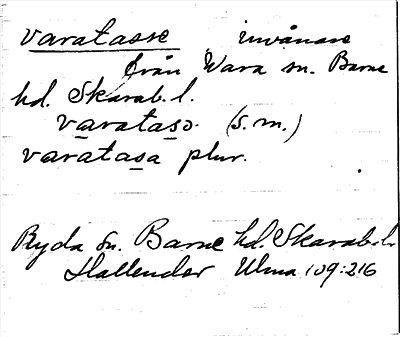 varatasse invånare
från Wara sn. Barne
hd. Skarab. l.
varataso. (s. m.)
varatasa plur.
Ryda sn. Barne hd. Skarab. l.
Hallender Ulma 109:216